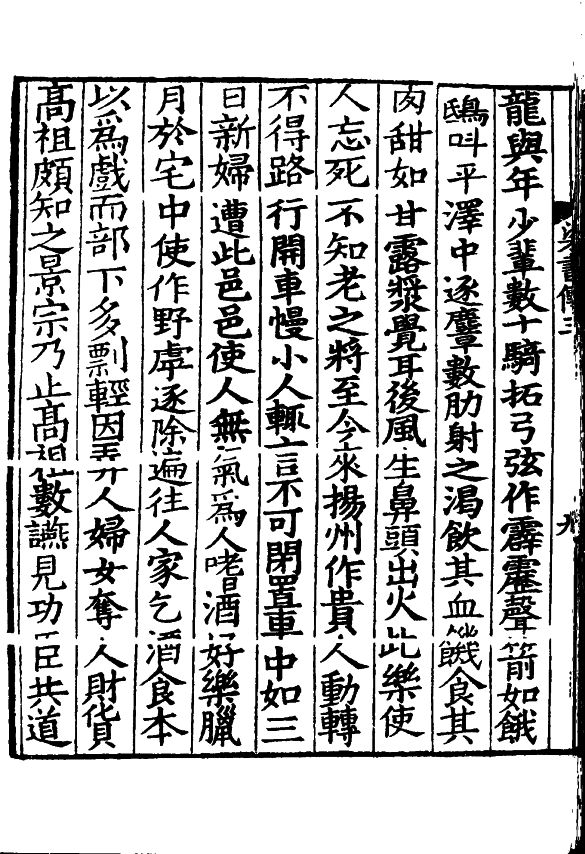 龍與年少輩數十騎拓弓弦作霹靂聲箭如餓
鴟叫平澤中逐麞數肋射之渴飲其血飢食其
肉甜如甘露漿覺耳後風生鼻頭出火此樂使
人忘死不知老之將至今來揚州作貴人動轉
不得路行開車幔小人輒言不可閉置車中如三
日新婦遭此邑邑使人無氣為人嗜酒好樂臘
月於宅中使作野虖逐除遍往人家乞酒食本
以為戲而部下多剽輕因弄人婦女奪人財貨
高祖頗知之景宗乃止高祖數讌見功臣共道
梁書傳三
九